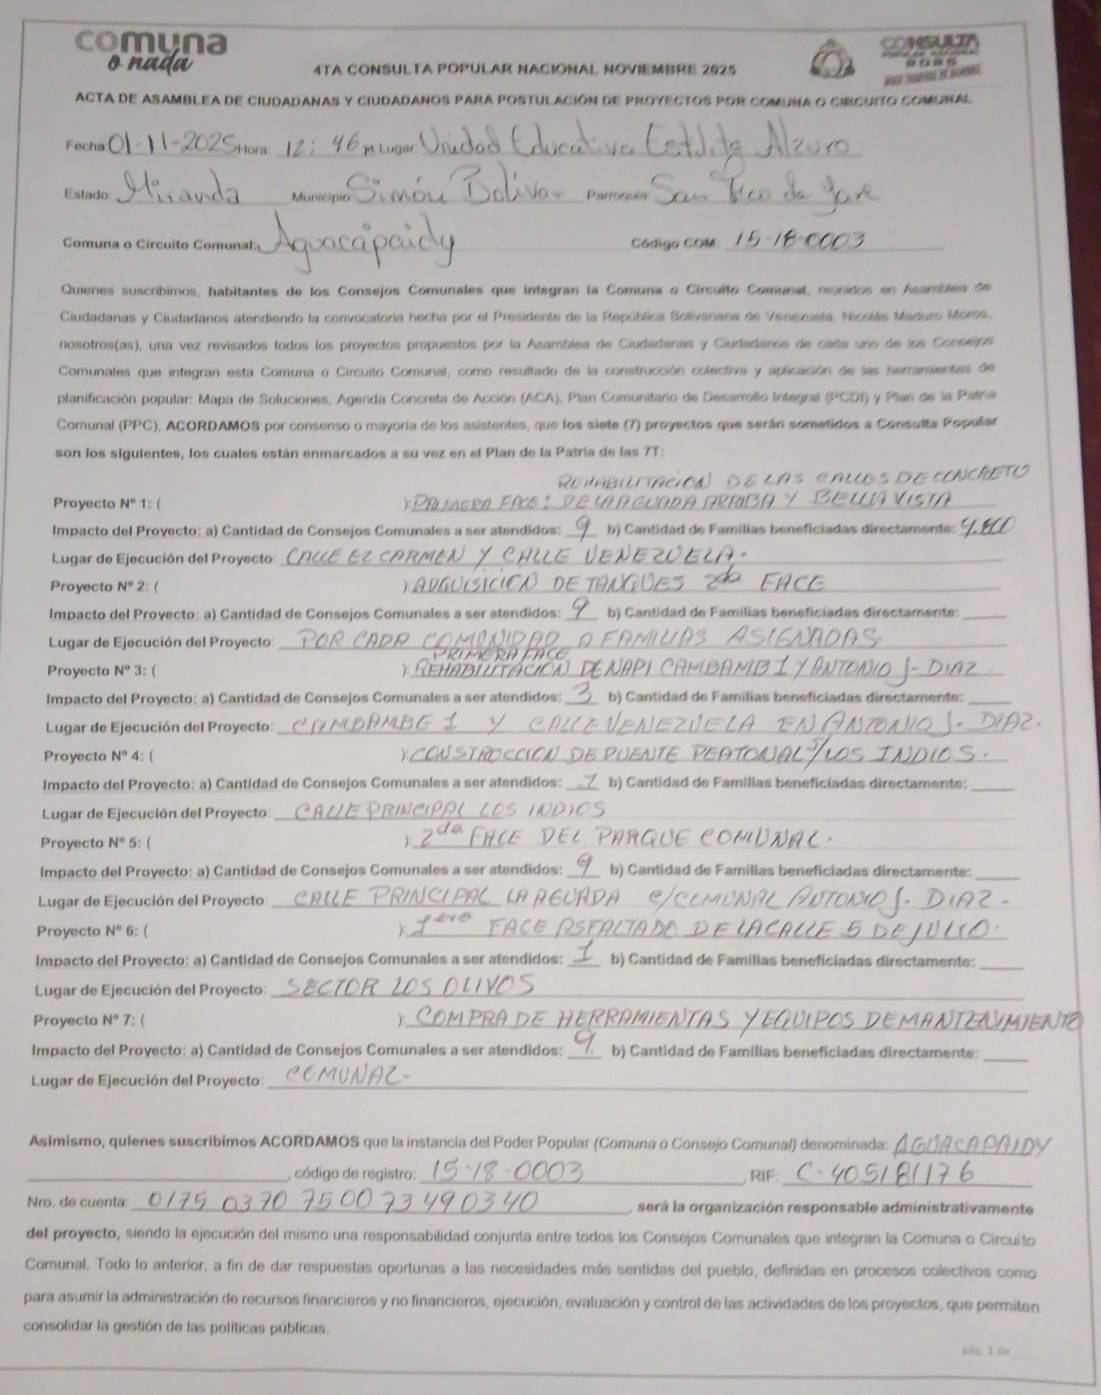 comuna
o nada
CONSULTA
4TA CONSULTA POPULAR NACIONAL NOVIEMBRE 2025
2025
ACTA DE ASAMBLEA DE CIUDADANAS Y CIUDADANOS PARA POSTULACIÓN DE PROYECTOS POR COMUNA O CIRCUITO COMUNAL
Fecha 01-11-2025 Hora: 12:46 pm Lugar Unidad Educativa Alzuro
Estado: Miranda Municipio Simón Bolivar Parroquia San Fco de Yare
Comuna o Circuito Comunal: Aguacapaidy Código COM: 15-18-0003
Quienes suscribimos, habitantes de los Consejos Comunales que integran la Comuna o Circuito Comunal, reunidos en Asamblea de
Ciudadanas y Ciudadanos atendiendo la convocatoria hecha por el Presidente de la República Bolivariana de Venezuela, Nicolás Maduro Moros,
nosotros(as), una vez revisados todos los proyectos propuestos por la Asamblea de Ciudadanas y Ciudadanos de cada uno de los Consejos
Comunales que integran esta Comuna o Circuito Comunal, como resultado de la construcción colectiva y aplicación de las herramientas de
planificación popular: Mapa de Soluciones, Agenda Concreta de Acción (ACA), Plan Comunitario de Desarrollo Integral (PCDI) y Plan de la Patria
Comunal (PPC), ACORDAMOS por consenso o mayoría de los asistentes, que los siete (7) proyectos que serán sometidos a Consulta Popular
son los siguientes, los cuales están enmarcados a su vez en el Plan de la Patria de las 7T:
REHABILITACION DE LAS CALLES DE CONCRETO
Proyecto N° 1: ( ) PRIMERA FACE: DE LA AGUADA ARRIBA Y BELLA VISTA
Impacto del Proyecto: a) Cantidad de Consejos Comunales a ser atendidos: 9 b) Cantidad de Familias beneficiadas directamente: 4.800
Lugar de Ejecución del Proyecto: CALLE EL CARMEN Y CALLE VENEZUELA.
Proyecto N° 2: ( ) ADQUISICION DE TANQUES 2da FACE
Impacto del Proyecto: a) Cantidad de Consejos Comunales a ser atendidos: 9 b) Cantidad de Familias beneficiadas directamente:
Lugar de Ejecución del Proyecto: POR CADA COMUNIDAD A FAMILIAS ASIGNADAS
PRIMERA FACE
Proyecto N° 3: ( ) REHABILITACIÓN DE NAPI CAMBAMB 1 Y ANTONIO J. DIAZ
Impacto del Proyecto: a) Cantidad de Consejos Comunales a ser atendidos: 3 b) Cantidad de Familias beneficiadas directamente:
Lugar de Ejecución del Proyecto: CAMBAMBE 1 Y CALLE VENEZUELA EN ANTONIO J. DIAZ.
Proyecto N° 4: ( ) CONSTRUCCION DE PUENTE PEATONAL S/LOS INDIOS.
Impacto del Proyecto: a) Cantidad de Consejos Comunales a ser atendidos: 1 b) Cantidad de Familias beneficiadas directamente:
Lugar de Ejecución del Proyecto: CALLE PRINCIPAL LOS INDIOS
Proyecto N° 5: ( ) 2da FACE DEL PARQUE COMUNAL.
Impacto del Proyecto: a) Cantidad de Consejos Comunales a ser atendidos: 9 b) Cantidad de Familias beneficiadas directamente:
Lugar de Ejecución del Proyecto: CALLE PRINCIPAL LA AGUADA C/COMUNAL ANTONIO J. DIAZ -
Proyecto N° 6: ( ) 1era FACE ASFALTADO DE LA CALLE 5 DE JULIO.
Impacto del Proyecto: a) Cantidad de Consejos Comunales a ser atendidos: 1 b) Cantidad de Familias beneficiadas directamente:
Lugar de Ejecución del Proyecto: SECTOR LOS OLIVOS
Proyecto N° 7: ( ) COMPRA DE HERRAMIENTAS Y EQUIPOS DE MANTENIMIENTO
Impacto del Proyecto: a) Cantidad de Consejos Comunales a ser atendidos: 9. b) Cantidad de Familias beneficiadas directamente:
Lugar de Ejecución del Proyecto: COMUNAL-
Asimismo, quienes suscribimos ACORDAMOS que la instancia del Poder Popular (Comuna o Consejo Comunal) denominada: AGUACAPAIDY
, código de registro: 15-18-0003, RIF: C-405181176
Nro. de cuenta: 0175 0370 7500 73490340, será la organización responsable administrativamente
del proyecto, siendo la ejecución del mismo una responsabilidad conjunta entre todos los Consejos Comunales que integran la Comuna o Circuito
Comunal. Todo lo anterior, a fin de dar respuestas oportunas a las necesidades más sentidas del pueblo, definidas en procesos colectivos como
para asumir la administración de recursos financieros y no financieros, ejecución, evaluación y control de las actividades de los proyectos, que permiten
consolidar la gestión de las políticas públicas.
pág. 1 de